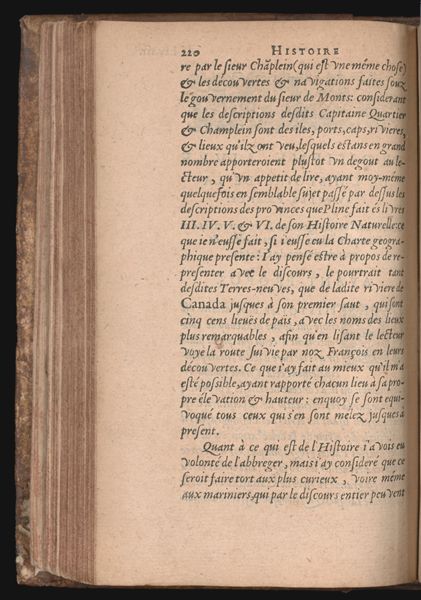 220 HISTOIRE
re par le sieur Chãplein (qui est vne méme chose)
& les découvertes & navigations faites souz
le gouvernement du sieur de Monts: considerant
que les descriptions desdits Capitaine Quartier
& Champlein sont des iles, ports, caps, rivieres,
& lieux qu'ilz ont veu, lesquels estans en grand
nombre apporteroient plustot vn degout au le-
cteur, qu'vn appetit de lire, ayant moy-méme
quelquefois en semblable sujet passé par dessus les
descriptions des provinces que Pline fait és livres
III. IV. V. & VI. de son Histoire Naturelle: ce
que ie n'eusse fait, si i'eusse eu la Charte geogra-
phique presente: I'ay pensé estre à propos de re-
presenter avec le discours, le pourtrait tant
desdites Terres-neuves, que de ladite riviere de
Canada jusques à son premier saut, qui sont
cinq cens lieuës de païs, avec les noms des lieux
plus remarquables, afin qu'en lisant le lecteur
voye la route suivie par noz François en leurs
découvertes. Ce que i'ay fait au mieux qu'il m'a
esté possible, ayant rapporté chacun lieu à sa pro-
pre élevation & hauteur: enquoy se sont equi-
voqué tous ceux qui s'en sont melez jusques à
present.
Quant à ce qui est de l'Histoire i'avois eu
volonté de l'abbreger, mais i'ay consideré que ce
seroit faire tort aux plus curieux, voire méme
aux mariniers, qui par le discours entier peuvent